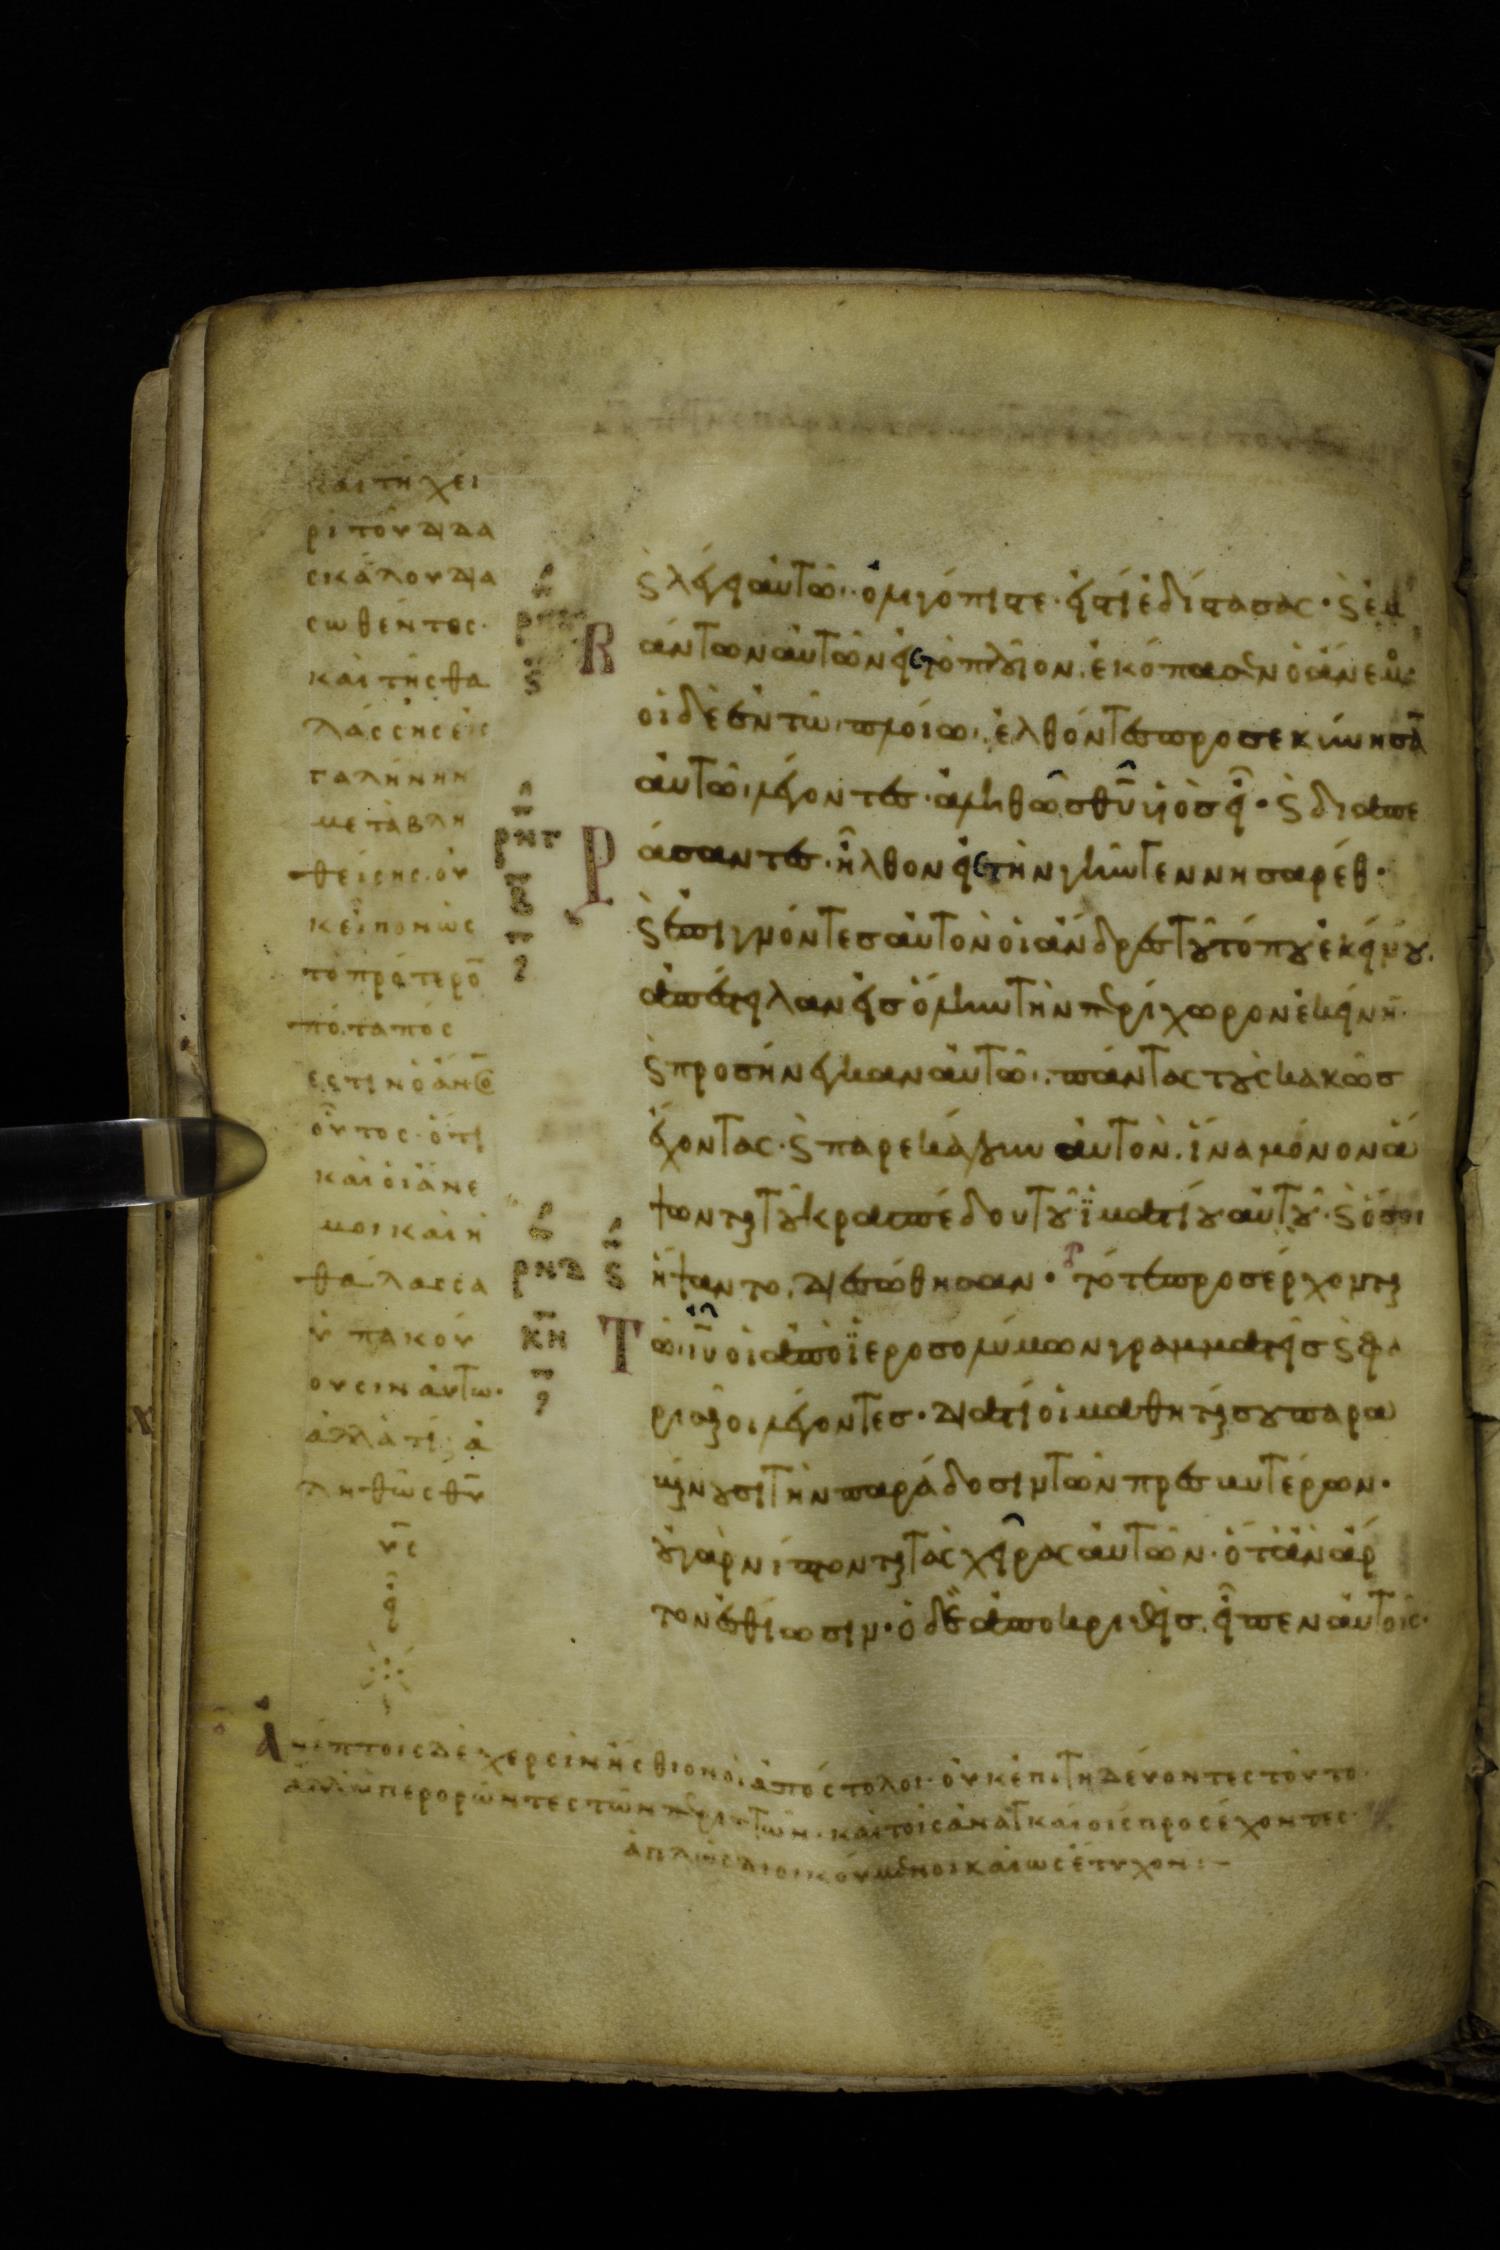 καὶ τῆ χει
ρὶ τοῦ διδα
σκάλου δια
σωθέντος·
καὶ τῆς θα
λάσσης εἰς
γαλήνην
μεταβλη
θείσης· οὐ
κ εἶπον ὡς
τὸ πρότερο̅
ποταπός
ἐστιν ὁ ἄν̅ο̅ς̅
οὗτος· ὅτι
καὶ οἱ ἄνε
μοι καὶ ἡ
θάλασσα
ὑπακού
ουσιν αὐτῶ·
ἀλλὰ τί; ἀ
ληθῶς θ̅υ̅
υ̅ς
εἶ
ϛ λέγει αὐτῶ· ὀλιγόπιστε· εἰς τί ἐδίστασας· ϛ ἐμ
άντων αὐτῶν εἰς τὸ πλοῖον. ἐκόπασεν ὁ ἄνεμος
οἱ δὲ ἐν τῶ πλοίω· ἐλθόντες προσεκύνησα̅
αὐτῶ· λέγοντες· ἀληθῶς θ̅υ̅ υἱὸς εἶ· ϛ διαπε
ράσαντες· ἦλθον εἰς τὴν γῆν γεννησαρέθ·
ϛ ἐπιγνόντες αὐτὸν οἱ ἄνδρες τοῦ τόπου ἐκείνου.
ἀπέστειλαν εἰς ὅλην τὴν περίχωρον ἐκείνην·
ϛ προσήνεγκαν αὐτῶ· πάντας τοὺς κακῶς
ἔχοντας· ϛ παρεκάλουν αὐτὸν. ἵνα μόνον ἅ
ψωνται τοῦ κρασπέδου τοῦ ἱματίου αὐτοῦ· ϛ ὅσοι
ἥψαντο. διεσώθησαν· τότε προσέρχονται
τῶ ι̅υ̅ οἱ ἀπὸ ἱεροσολύμων γραμματεῖς ϛ φα
ρισαῖοι λέγοντες· διατί οἱ μαθηταί σου παρα
βαίνουσι τὴν παράδοσιν τῶν πρεσβυτέρων·
οὐ γὰρ νίπτονται τὰς χεῖρας αὐτῶν· ὅταν ἄρ
τον ἐσθίωσιν· ὁ δὲ ἀποκριθεὶς. εἶπεν αὐτοῖς·
Ἀνίπτοις δὲ χερσὶν ἤσθιον οἱ ἀπόστολοι· οὐκ ἐπιτηδεύοντες τοῦτο·
ἀλλ' ὑπερορῶντες τῶν περιττῶν· καὶ τοῖς ἀναγκαίοις προσέχοντες·
ἁπλῶς διοικούμενοι καὶ ὡς ἔτυχον:–